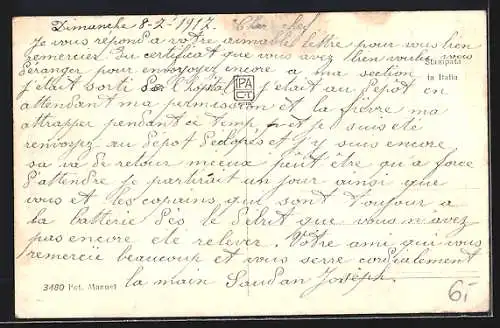 Dimanche 8-2-1917 Cher chef
Je vous répond a votre aimable lettre pour vous bien
remercier Du certificat que vous avez bien voulu vous
Déranger pour envoyez encore a ma section
Stampata
in Italia
j'etait sorti De l'hopital j'etait au Dépot en
IPA
CT
attendant ma permission et la fièvre ma
attrapper pendant ce temp et je suis été
renvoyez au Dépot et j'y suis encore
sa va De retour mieux peut être qu'a force
D'attendre je partirait un jour ainsi que
vous et les copains qui sont Toujour a
la batterie Dès le Debut que vous n'avez
pas encore été relever. Votre ami qui vous
remercie beaucoup et vous serre cordialement
3480 Pet. Marnet
la main Saudan Joseph.
6.-